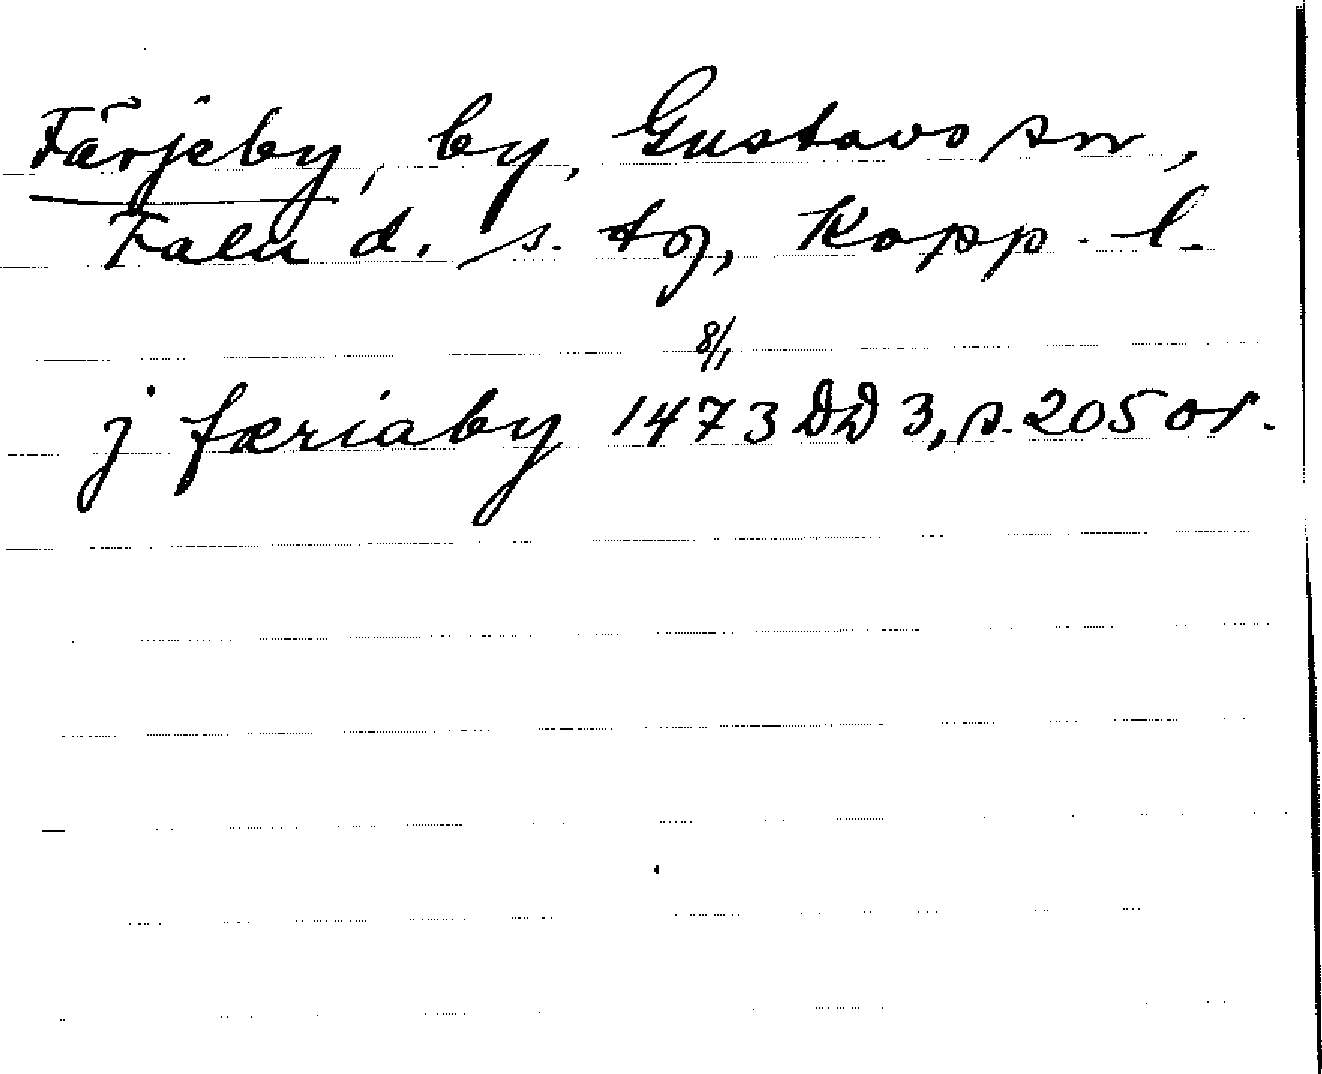 Färjeby, by, Gustavs sn,
Falu d. s. tg, Kopp. l.
8/1
j færiaby 1473 DD 3, s. 205 or.